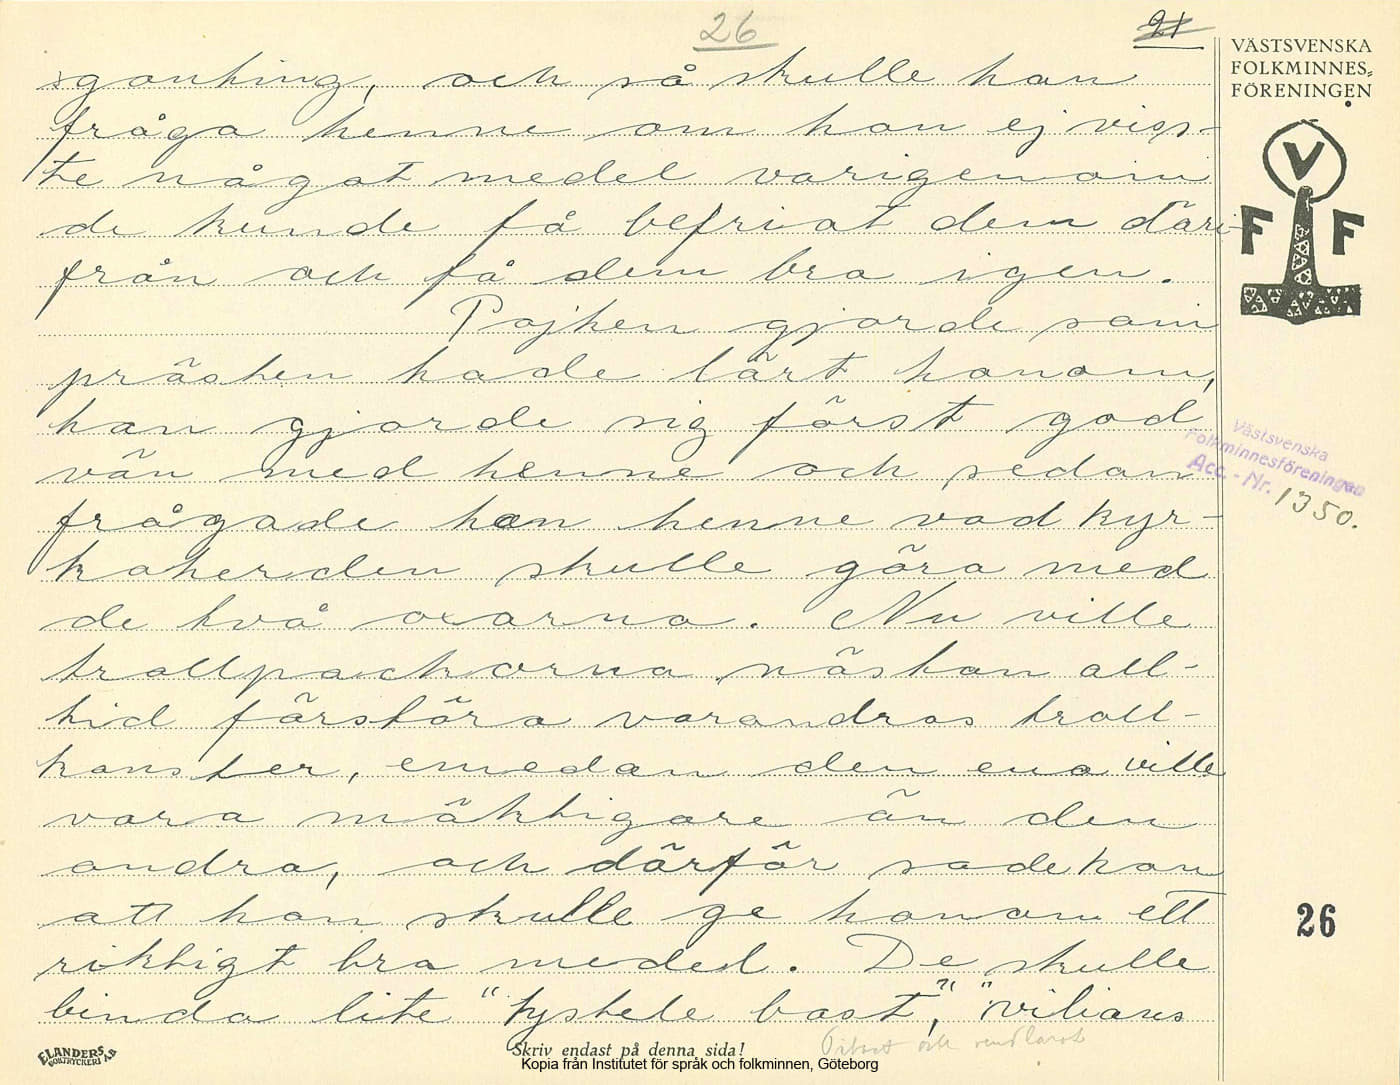 26
21
VÄSTSVENSKA
FOLKMINNES-
FÖRENINGEN
gonhing, och så skulle han
fråga henne om hon ej viss-
te något medel varigenom
de kunde få befriat dem däri-
från och få dem bra igen.
Pojken gjorde som
prästen hade lärt honom,
han gjorde sig först god
vän med henne och sedan
frågade han henne vad kyr-
koherden skulle göra med
de två oxarna. Nu ville
trollpackorna nästan all-
tid förstöra varandras troll-
konster, emedan den ena ville
vara mäktigare än den
andra, och därför sade hon
att hon skulle ge honom ett
riktigt bra medel. De skulle
binda lite "tystele bast," "vilians
V
F F
Västsvenska
Folkminnesföreningen
Acc. - Nr. 1350.
26
ELANDERS
BOKTRYCKERI A.B
Skriv endast på denna sida!
Tibast och vendlarot
Kopia från Institutet för språk och folkminnen, Göteborg